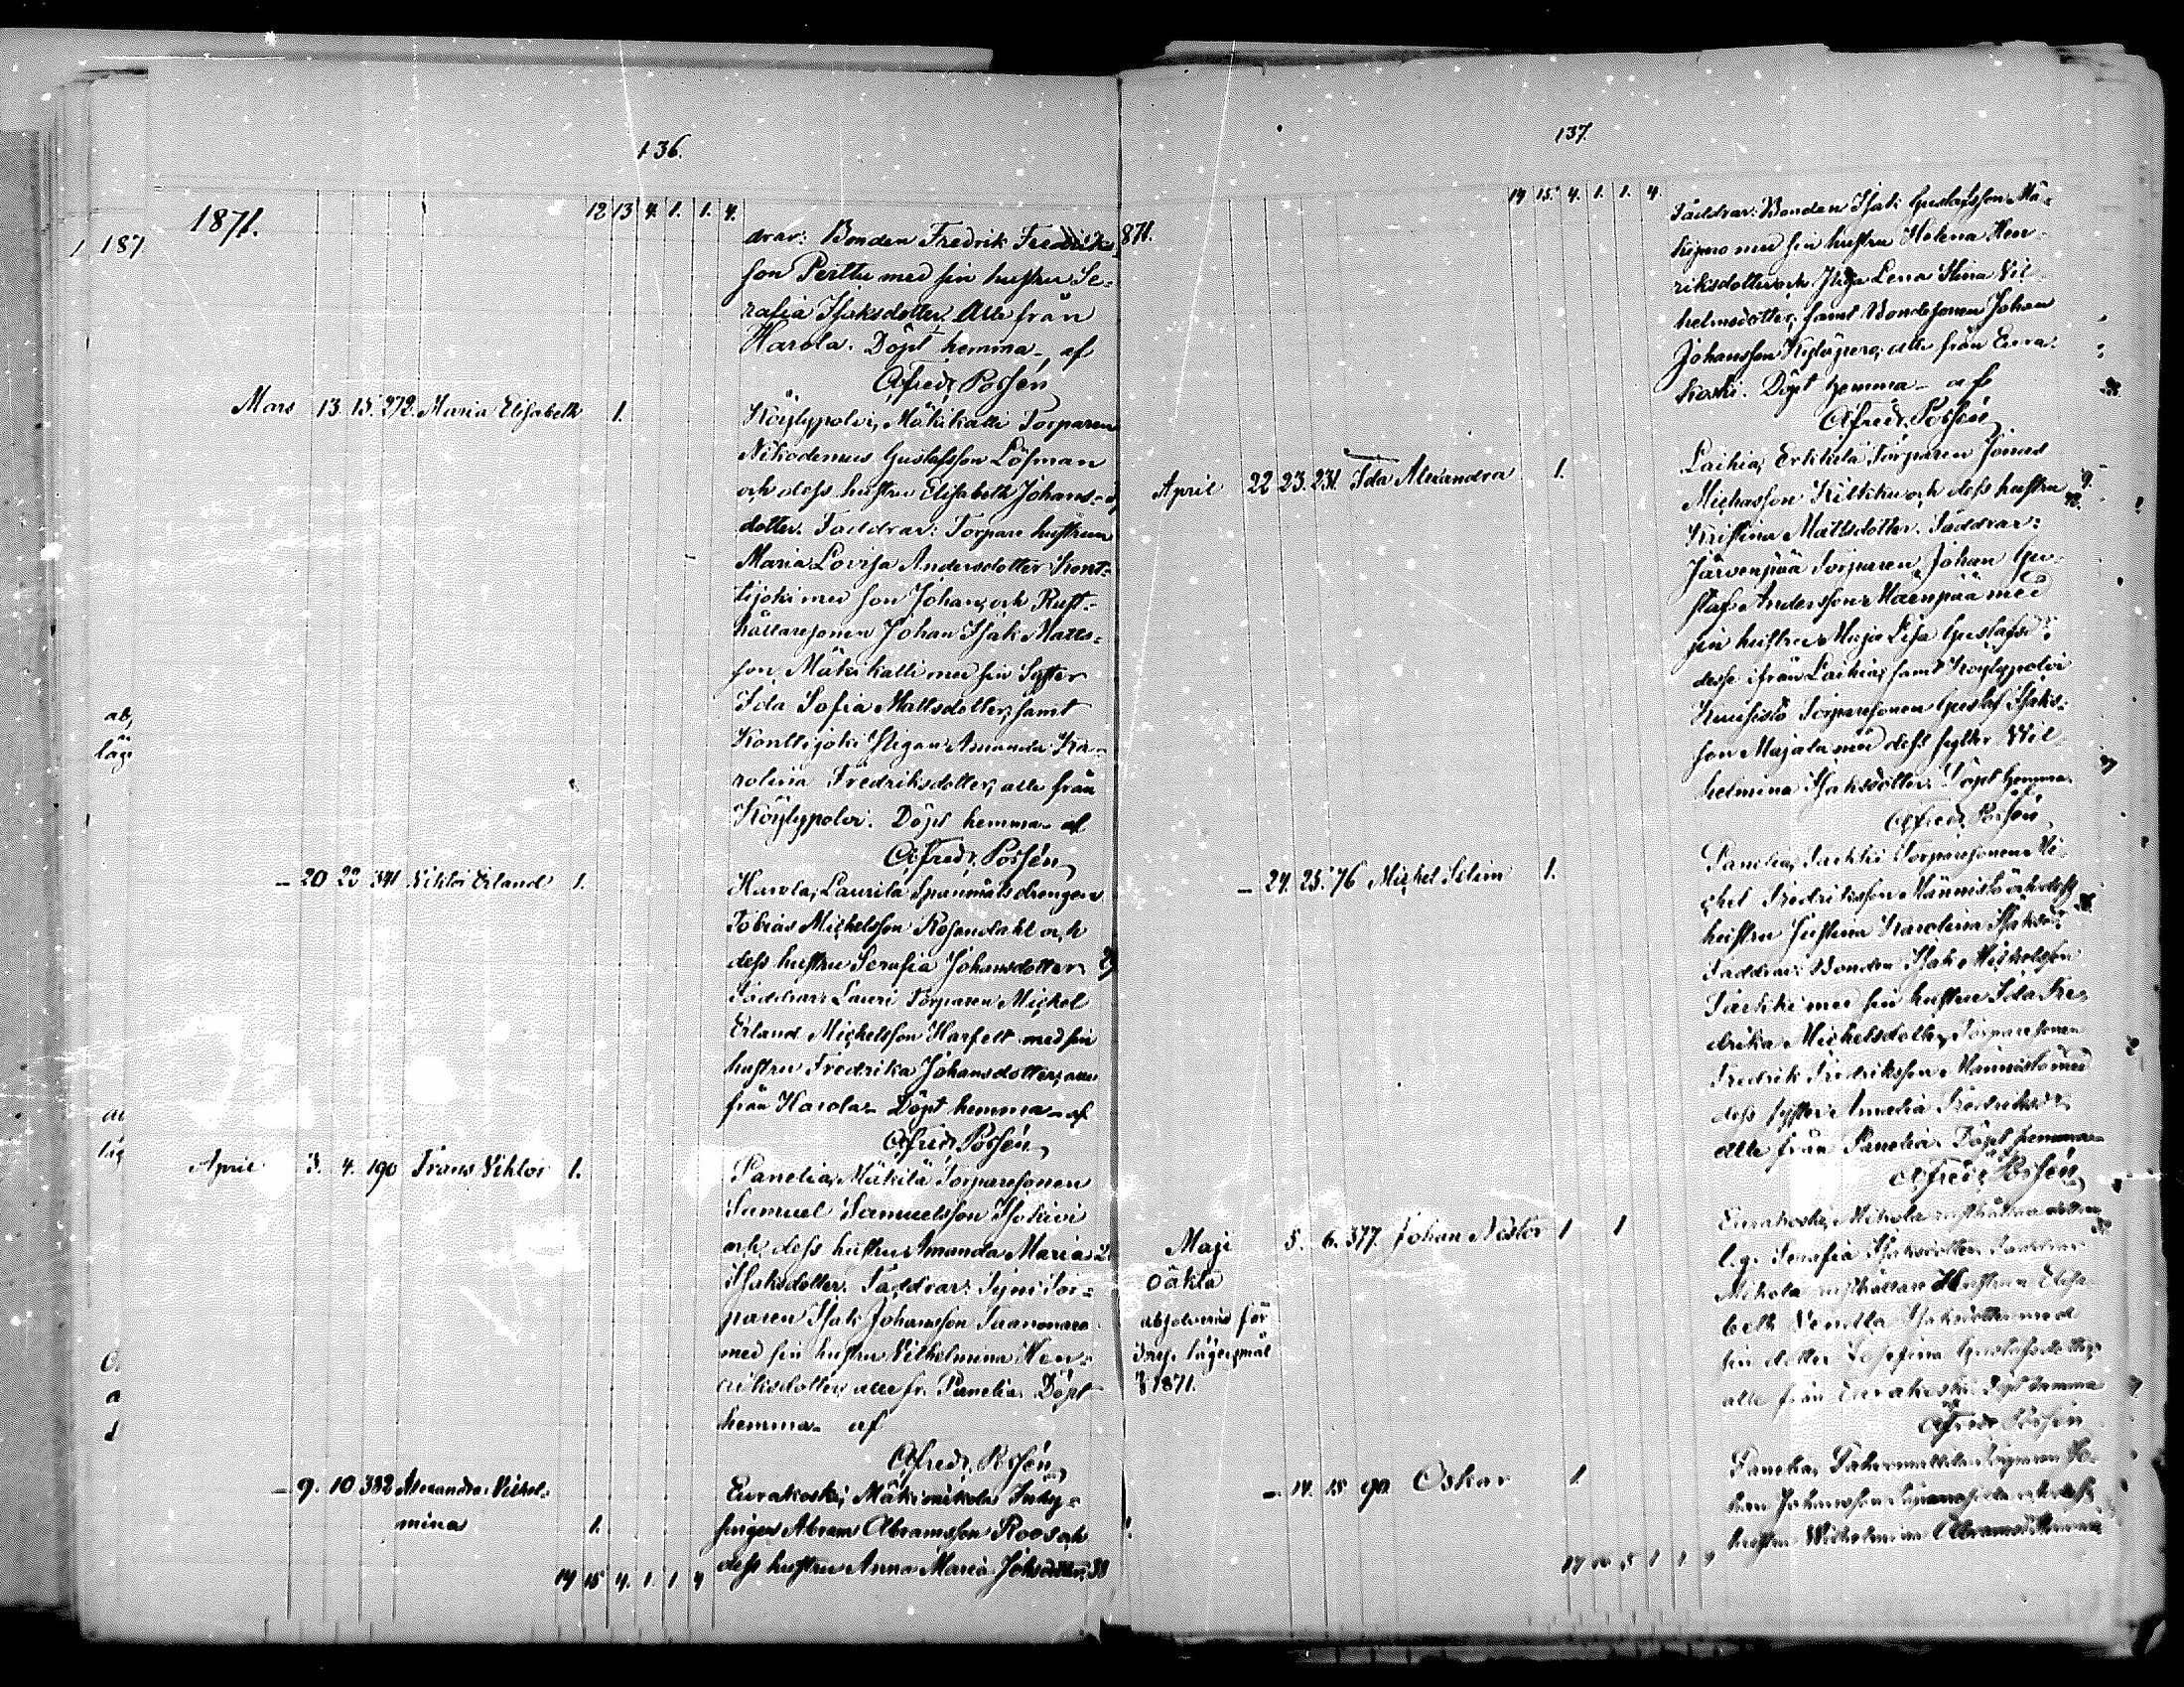 136.
1871.
12 13 4. 1. 1. 4.
drar: Bonden Fredrik Fredriks-
son Perttu med sin hustru Se-
rafia Isaksdotter. Alla från
Harola. Döpt hemma - af
Alfred Possén
Mars 13. 15. 272. Maria Elisabeth 1.
Köylypolvi, Mäkikalli Torparen
Nikodemus Gustafsson Löfman
och dess hustru Elisabeth Johans-
dotter. Faddrar: Torpare hustrun
Maria Lovisa Andersdotter Kont-
tijoki med son Johan, och Rust-
hållaresonen Johan Isak Matts-
son Mäkikalli med sin Syster
Ida Sofia Mattsdotter, samt
Konttijoki Pigan Amanda Ka-
rolina Fredriksdotter, alla från
Köylypolvi. Döpt hemma - af
Alfred Possén
- 20 22 341 Viktor Erland 1.
Harola, Laurila Spannmålsdrengen
Tobias Michelsson Rosendahl och
dess hustru Serafia Johansdotter.
Faddrar: Lauri Torparen Michel
Erland Michelsson Harfelt med sin
hustru Fredrika Johansdotter, alla
från Harola - Döpt hemma - af
Alfred Possén
April 3. 4. 190 Frans Viktor 1.
Panelia, Mäkilä Torparesonen
Samuel Samuelsson Isokivi
och dess hustru Amanda Maria
Isaksdotter. Faddrar: Syni Tor-
paren Isak Johansson
med sin hustru Vilhelmina Hen-
riksdotter, alla fr. Panelia. Döpt
hemma - af
Alfred Possén
- 9. 10 382 Alexandra Vilhel-
mina 1.
Eurakoski, Mäkimikola Inhy-
singen Abram Abramsson Roos och
dess hustru Anna Maria
14 15 4. 1. 1 4
137.
871.
14 15. 4. 1. 1. 4.
Faddrar: Bonden Isak Gustafsson Mä-
med sin hustru Helena Hen-
riksdotter och Lena Stina Vil-
helmsdotter, samt Bondesonen Johan
Johansson alla från Eura-
koski. Döpt hemma - af
Alfred Possén
April 22 23. 231. Ida Alexandra 1.
Laihia, Erkkilä Torparen Jonas
Michelsson och dess hustru
Kristina Mattsdotter. Faddrar:
Järvenpää Torparen Johan Gu-
staf Andersson Mäenpää med
sin hustru Maja Lisa
desse ifrån Laihia, samt Köylypolvi
Torparesonen Gustaf Isaks-
son Majala med dess syster Wil-
helmina Isaksdotter. Döpt hemma
af
Alfred Possén
- 24. 25. 76 Michel Selim 1.
Panelia, Torparesonen Mi-
chel Fredriksson Männistö och dess
hustru Justina Karolina
Faddrar: Bonden Isak Michelsson
med sin hustru Ida Fre-
drika Michelsdotter, Torparesonen
Fredrik Fredriksson Männistö med
dess syster Amalia
alla från Panelia. Döpt hemma
af
Alfred Possén
Maji 5. 6. 377. Johan Nestor 1 1
Oäkta
absolverad för
lägersmål
1871.
Eurakoski, Mikola
l. q. Serafia Isaksdotter. Faddrar
Mikola Hustrun Elisa-
beth Isaksdotter med
sin dotter Josefina Gustafsdotter,
alla från Eurakoski. Döpt hemma
af
Alfred Possén
- 14. 15 90 Oskar 1.
Panelia, Torparen Jo-
han Johansson och dess
hustru Wilhelmina